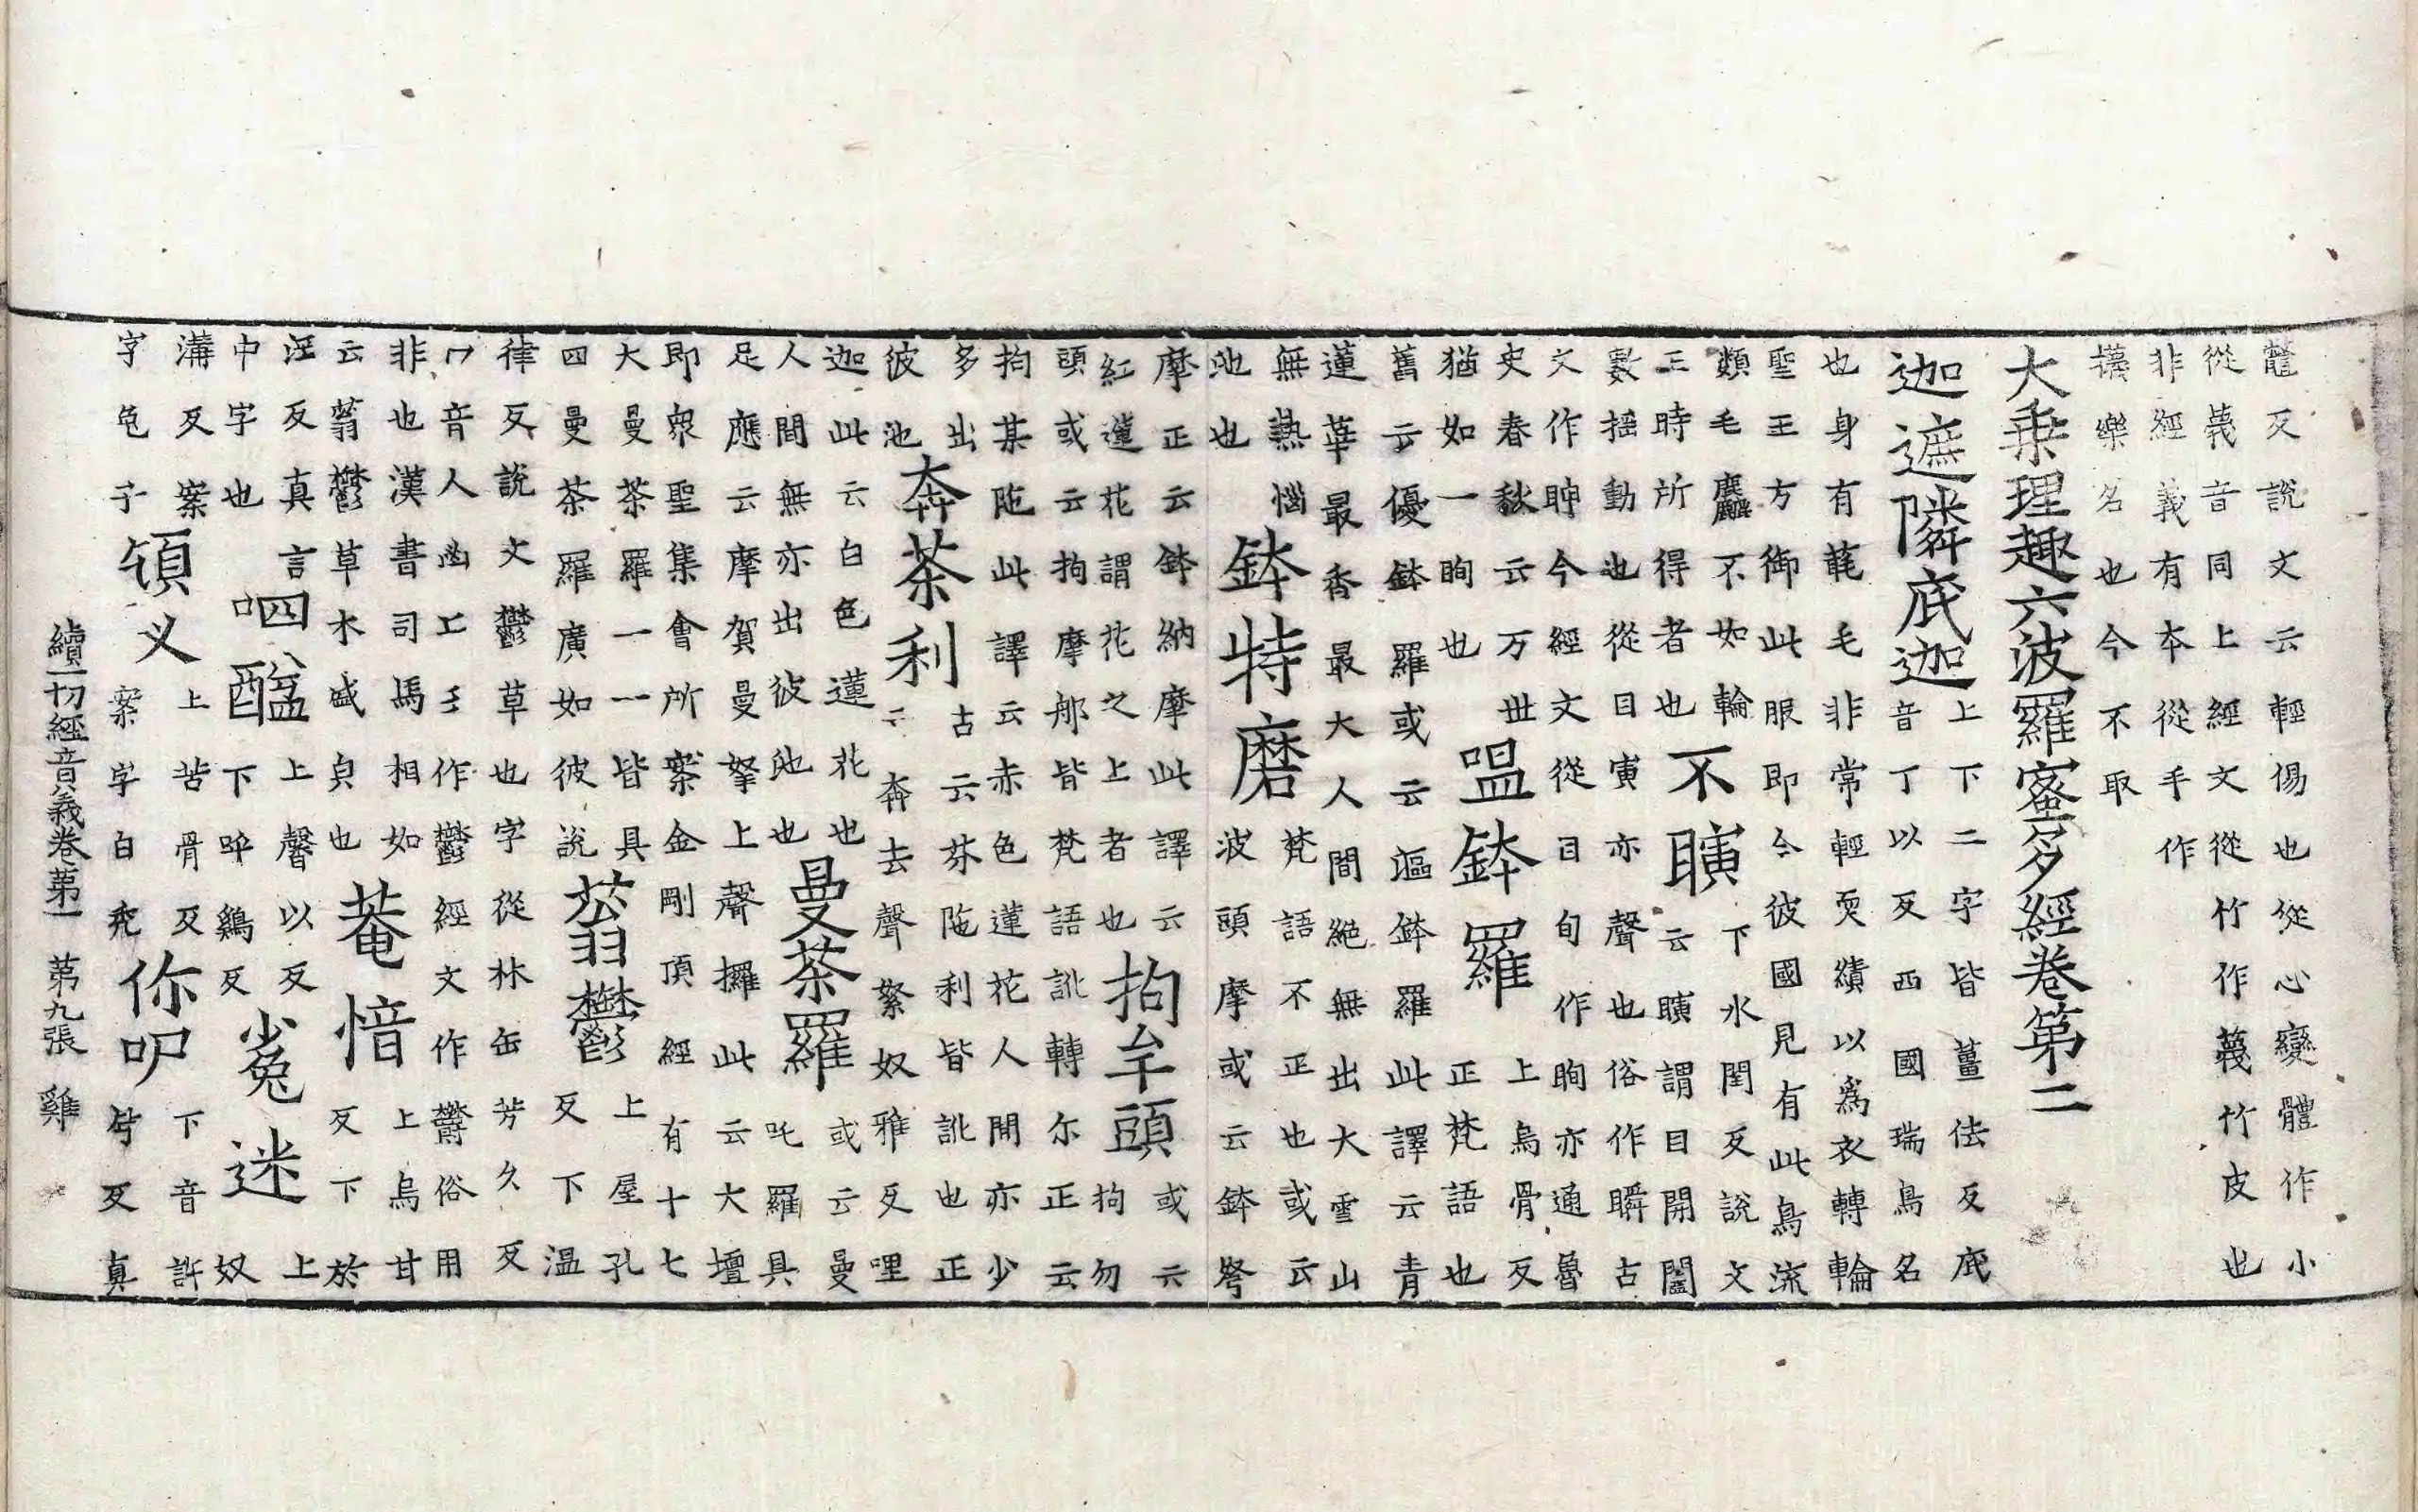 反說文云輕傷也從心變體作小
從蔑音同上經文從竹作䉾竹皮也
非經義有本從手作
樂名也今不取
大乘理趣六波羅蜜多經卷第二
迦遮隣底迦上下二字皆薑佉反底
音丁以反西國瑞鳥名
也身有毛非常輕耎績以為衣轉輪
聖王方御此服即今彼國見有此鳥流
類毛麤不如輪
王時所得者也不瞚下水閏反說文
云瞚謂目開闔
數搖動也從目寅亦聲也俗作瞬古
文作眒今經文從目旬作眴亦通魯
史春秋云万世
猶如一眴也嗢鉢羅上烏骨反
正梵語也
舊云優鉢羅或云漚鉢羅此譯云青
蓮華最香最大人間絕無出大雪山
無熱惱
池也鉢特磨梵語不正也或云
波頭摩或云鉢弩
摩正云鉢納摩此譯云
紅蓮花謂花之上者也拘牟頭或云
拘勿
頭或云拘摩郍皆梵語訛轉尔正云
拘某陁此譯云赤色蓮花人間亦少
多出
彼池奔茶利古云芬陁利皆訛也正
云奔去聲絮奴雅反哩
迦此云白色蓮花也
人間無亦出彼池也曼茶羅或云曼
吒羅具
足應云摩賀曼拏上聲攞此云大壇
即衆聖集會所案金剛頂經有十七
大曼茶羅一一皆具
四曼茶羅廣如彼說蓊鬱上屋孔
反下温
律反說文鬱草木也字從林缶芳久反
冖音人凼工彡作鬱經文作欝俗用
非也漢書司馬相如
云蓊鬱草木盛皃也菴愔上烏甘
反下於
淫反真言
中字也呬醯上馨以反
下鷄反迷上
奴
溝反案
字頷义上苦骨反
案字白你呬下音許
反真
續一切經音義卷第一 第九張 雞